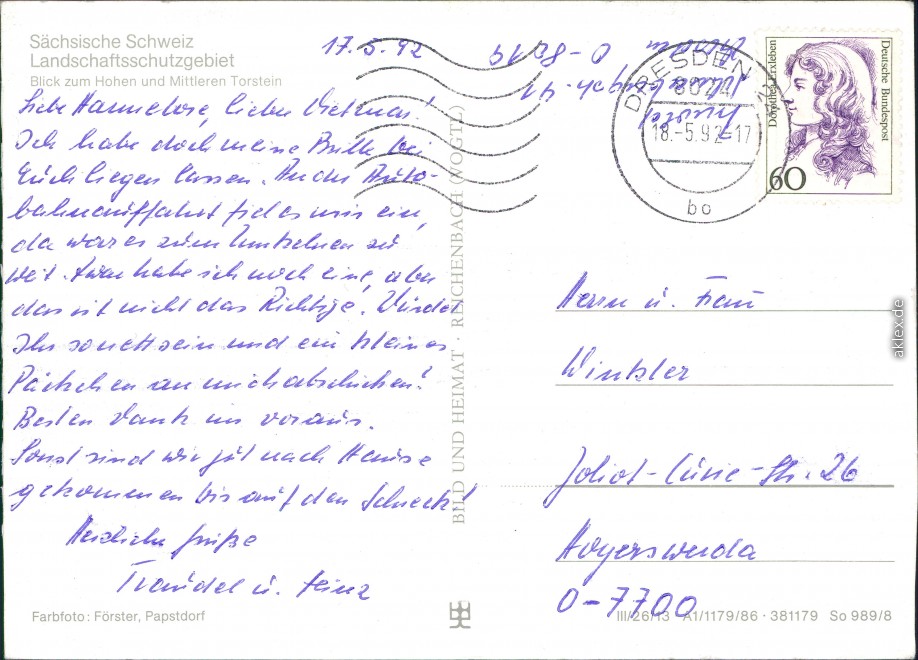 Sächsische Schweiz
Landschaftsschutzgebiet
Blick zum Hohen und Mittleren Torstein
17.5.92
Liebe Hannelore, lieber Dietmar!
Ich habe doch meine Brille bei
Euch liegen lassen. An der Auto-
bahnauffahrt fiel es uns ein,
da war es zum Umkehren zu
weit. Zwar habe ich noch eine, aber
das ist nicht das Richtige. Würdet
Ihr so nett sein und ein kleines
Päckchen an mich abschicken?
Besten Dank im voraus.
Sonst sind wir gut nach Hause
gekommen bis auf den Schreck!
Herzliche Grüße
Traudel u. Heinz
Farbfoto: Förster, Papstdorf
BILD UND HEIMAT · REICHENBACH (VOGTL)
DRESDEN
8024
18.-5.92-17
bo
Deutsche Bundespost
Dorothea Erxleben
60
Herrn u. Frau
Winkler
Joliot-Curie-Str. 26
Hoyerswerda
O-7700
III/26/13 A1/1179/86 · 381179 So 989/8
aklex.de